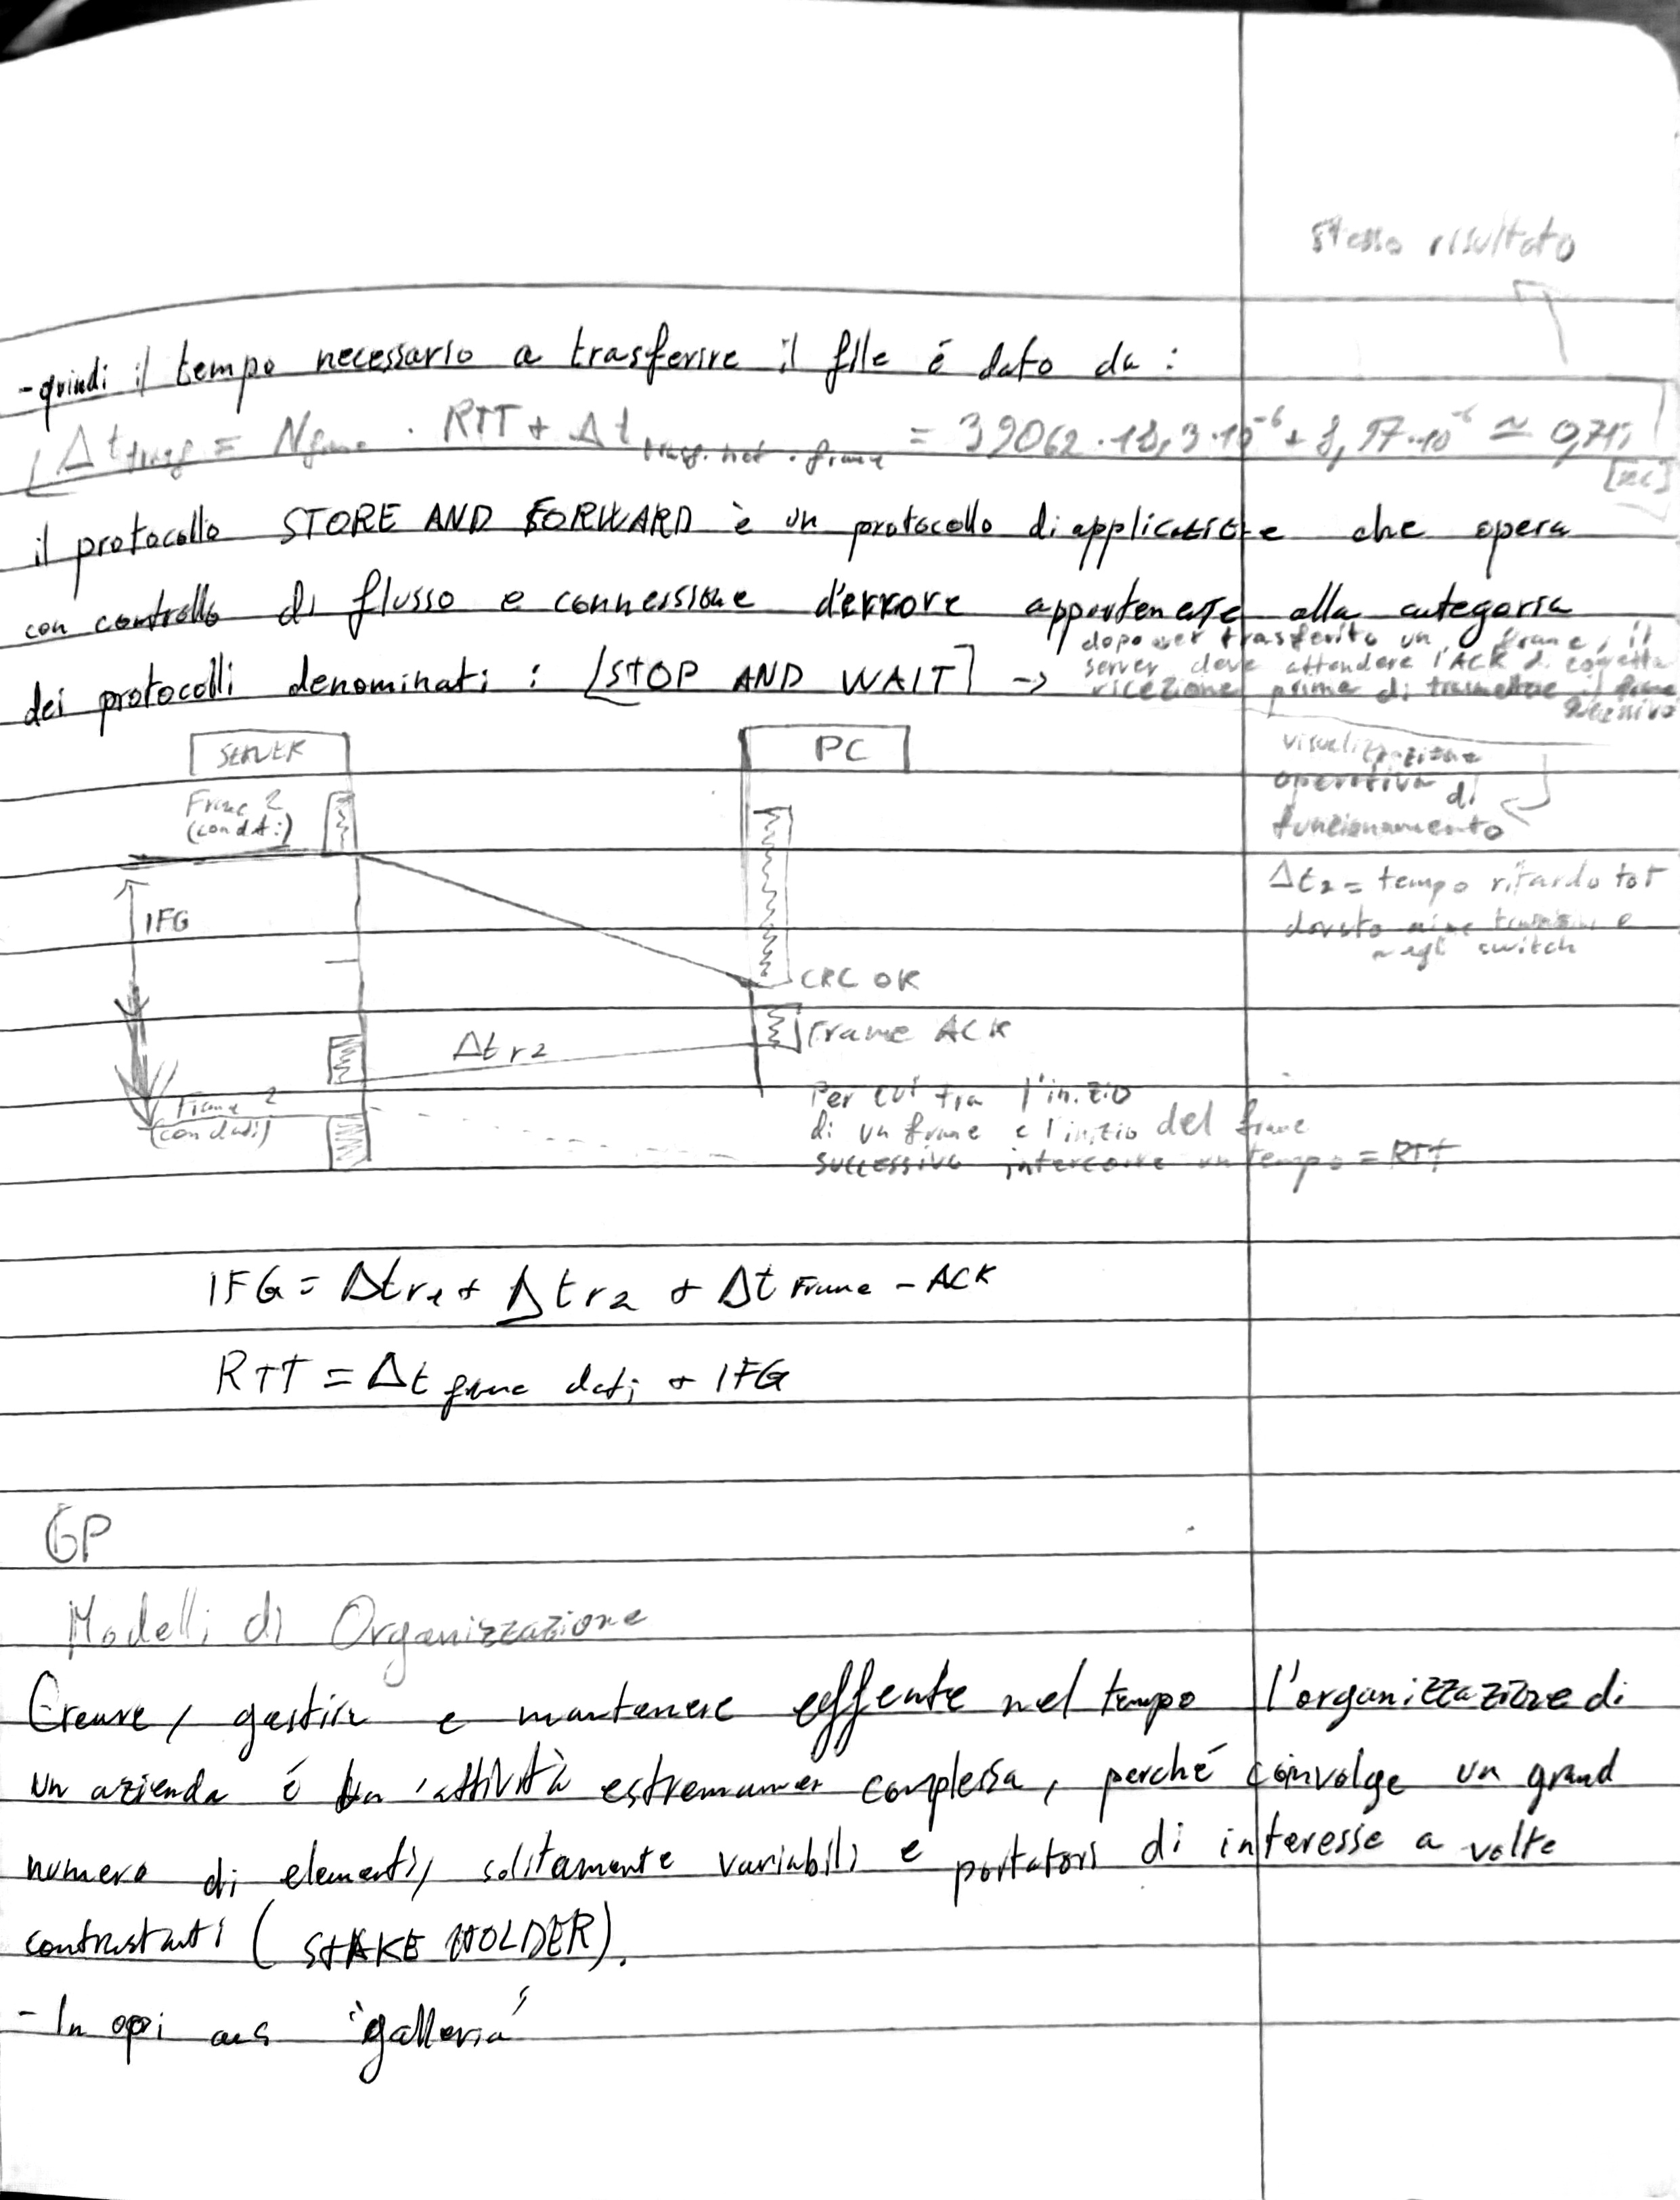 stesso risultato
- quindi il tempo necessario a trasferire il file é dato da :
Δt trasf = Nframe . RTT + Δt trasf. net. frame = 39062 . 18,3 . 10⁻⁶ + 8,97 . 10⁻⁶ ≃ 0,715
[sec]
il protocollo STORE AND FORWARD è un protocollo di applicazione che opera
con controllo di flusso e connessione d'errore appartenente alla categoria
dei protocolli denominati : [STOP AND WAIT] ->
dopo aver trasferito un frame, il
server deve attendere l'ACK di corretta
ricezione prima di trasmettere il frame
successivo
SERVER
PC
visualizzazione
operativa di
funzionamento
Frame 2
(con dati)
Δt2 = tempo ritardo tot
dovuto e
negli switch
IFG
CRC OK
Frame ACK
Δt r2
Frame 2
(con dati)
Per cui tra l'inizio
di un frame e l'inizio del frame
successivo intercorre un tempo = RTT
IFG = Δtr1 + Δtr2 + Δt Frame - ACK
RTT = Δt frame dati + IFG
GP
Modelli di Organizzazione
Creare, gestire e mantenere effente nel tempo l'organizzazione di
un azienda é un'attività estremamer complessa, perché coinvolge un grand
numero di elementi, solitamente variabili e portatori di interesse a volte
contrastanti (STAKE HOLDER).
- In "galleria"